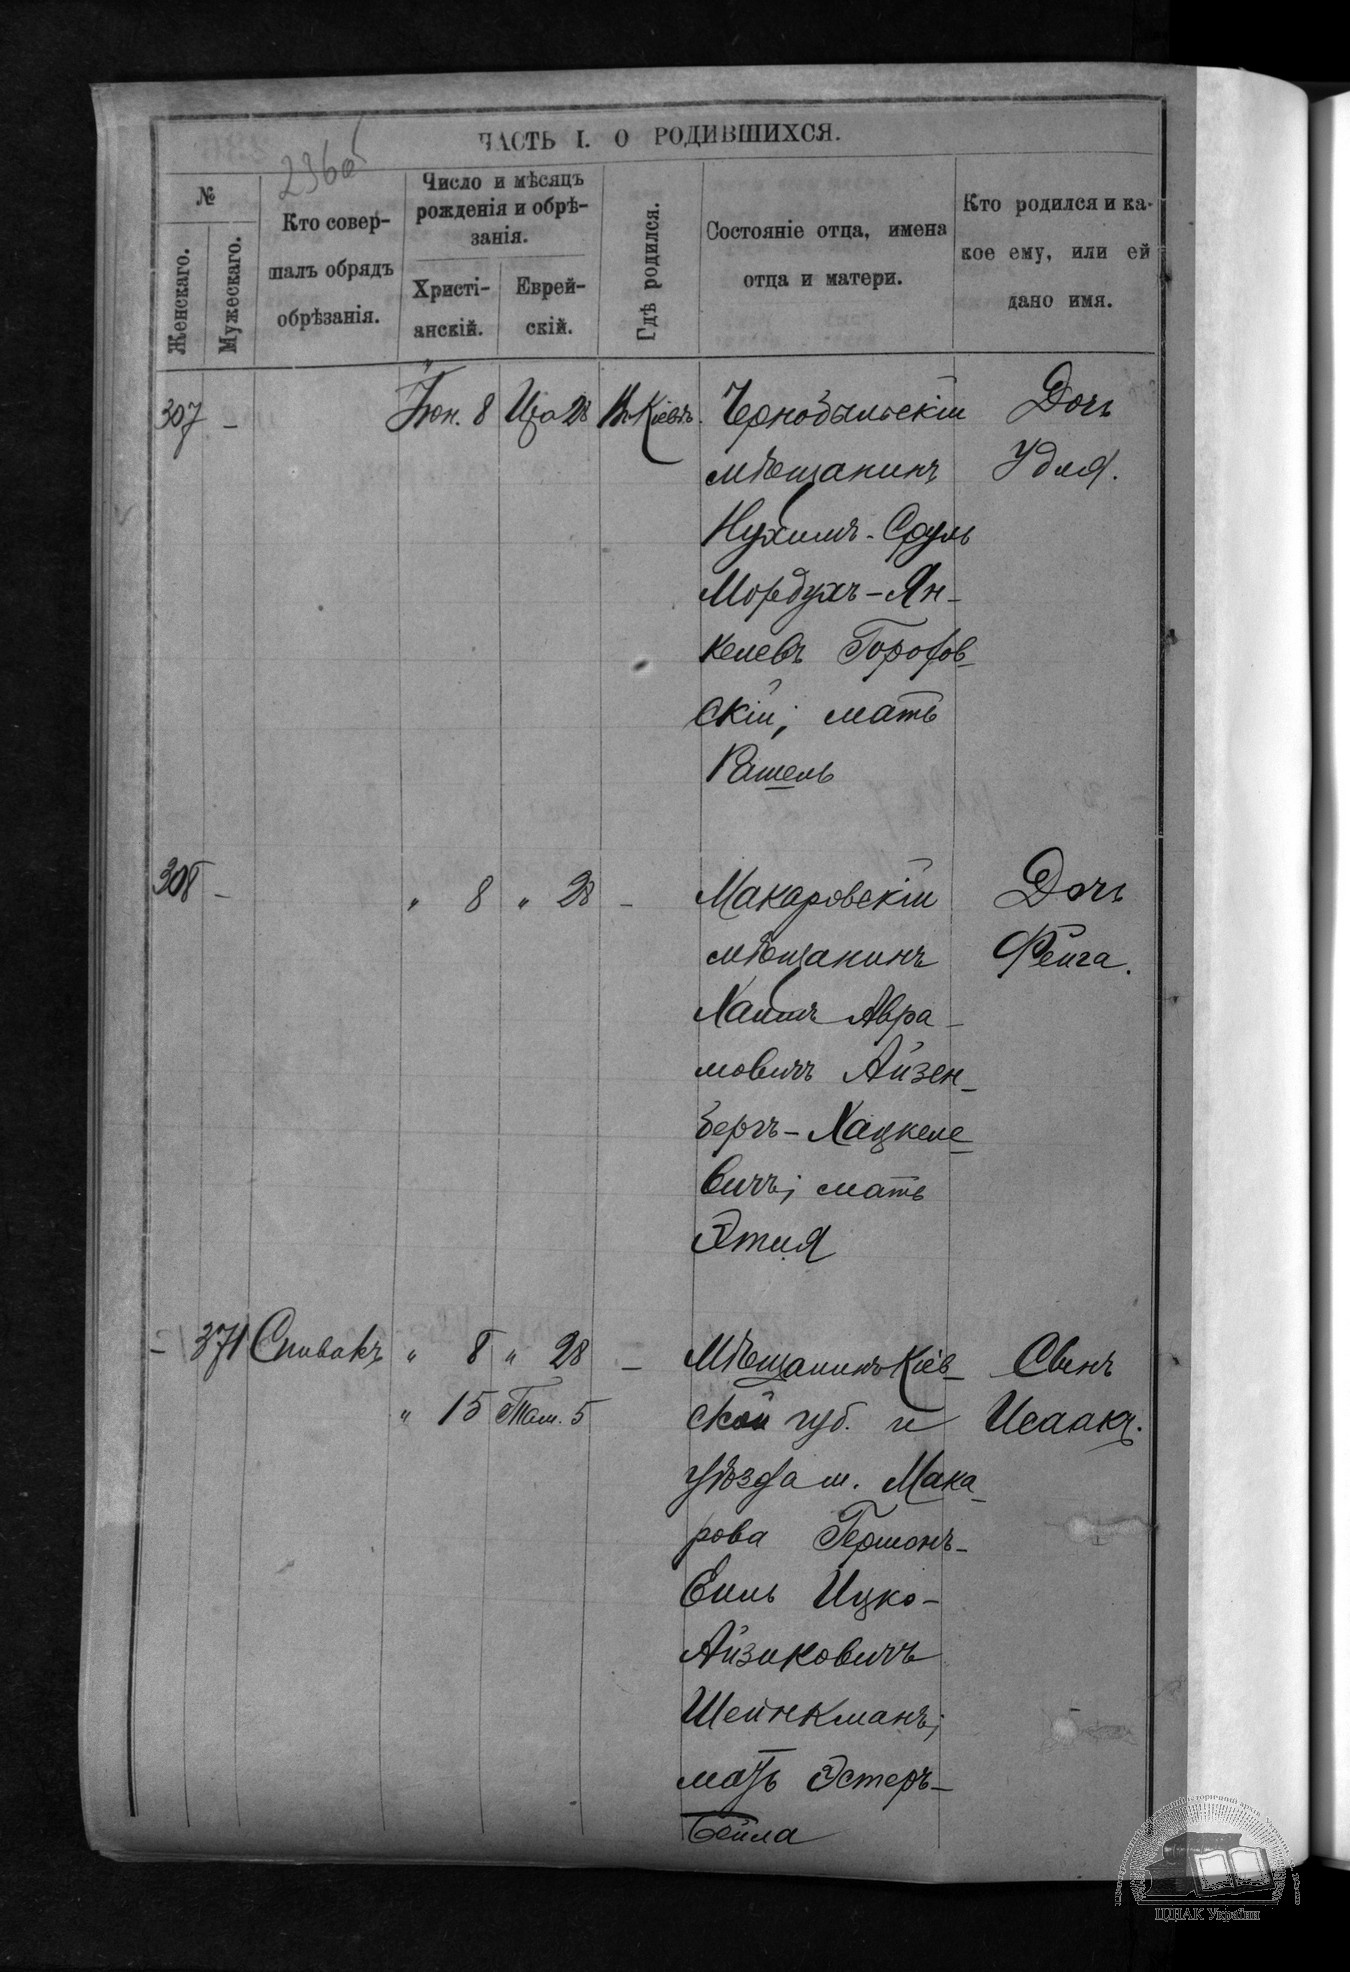 ЧАСТЬ I. О РОДИВШИХСЯ.
236об
№
Женскаго.
Мужескаго.
Кто совер-
шалъ обрядъ
обрѣзанія.
Число и мѣсяцъ
рожденія и обрѣ-
занія.
Христі-
анскій.
Еврей-
скій.
Гдѣ родился.
Состояніе отца, имена
отца и матери.
Кто родился и ка-
кое ему, или ей
дано имя.
307 - Іюн. 8 28 Кіевѣ. Чернобыльскій Дочь
мѣщанинъ Удля.
Нухимъ-Сруль
Мордухъ-Ян-
келевъ
скій; мать
Рашель
308 - " 8 " 28 - Макаровскій Дочь
мѣщанинъ Фейга.
Хаимъ Авра-
мовичъ Айзен-
бергъ-Хацкеле
вичъ; мать
Этля
- 371 Спивакъ " 8 " 28 - Мѣщанинъ Кіев- Сынъ
" 15 Там. 5 ской губ. и Исаакъ.
уѣзда м. Мака-
рова Гершонъ-
Ицко-
Айзиковичъ
Шейнкманъ;
мать Эстеръ-
Бейла
ЦДІАК України